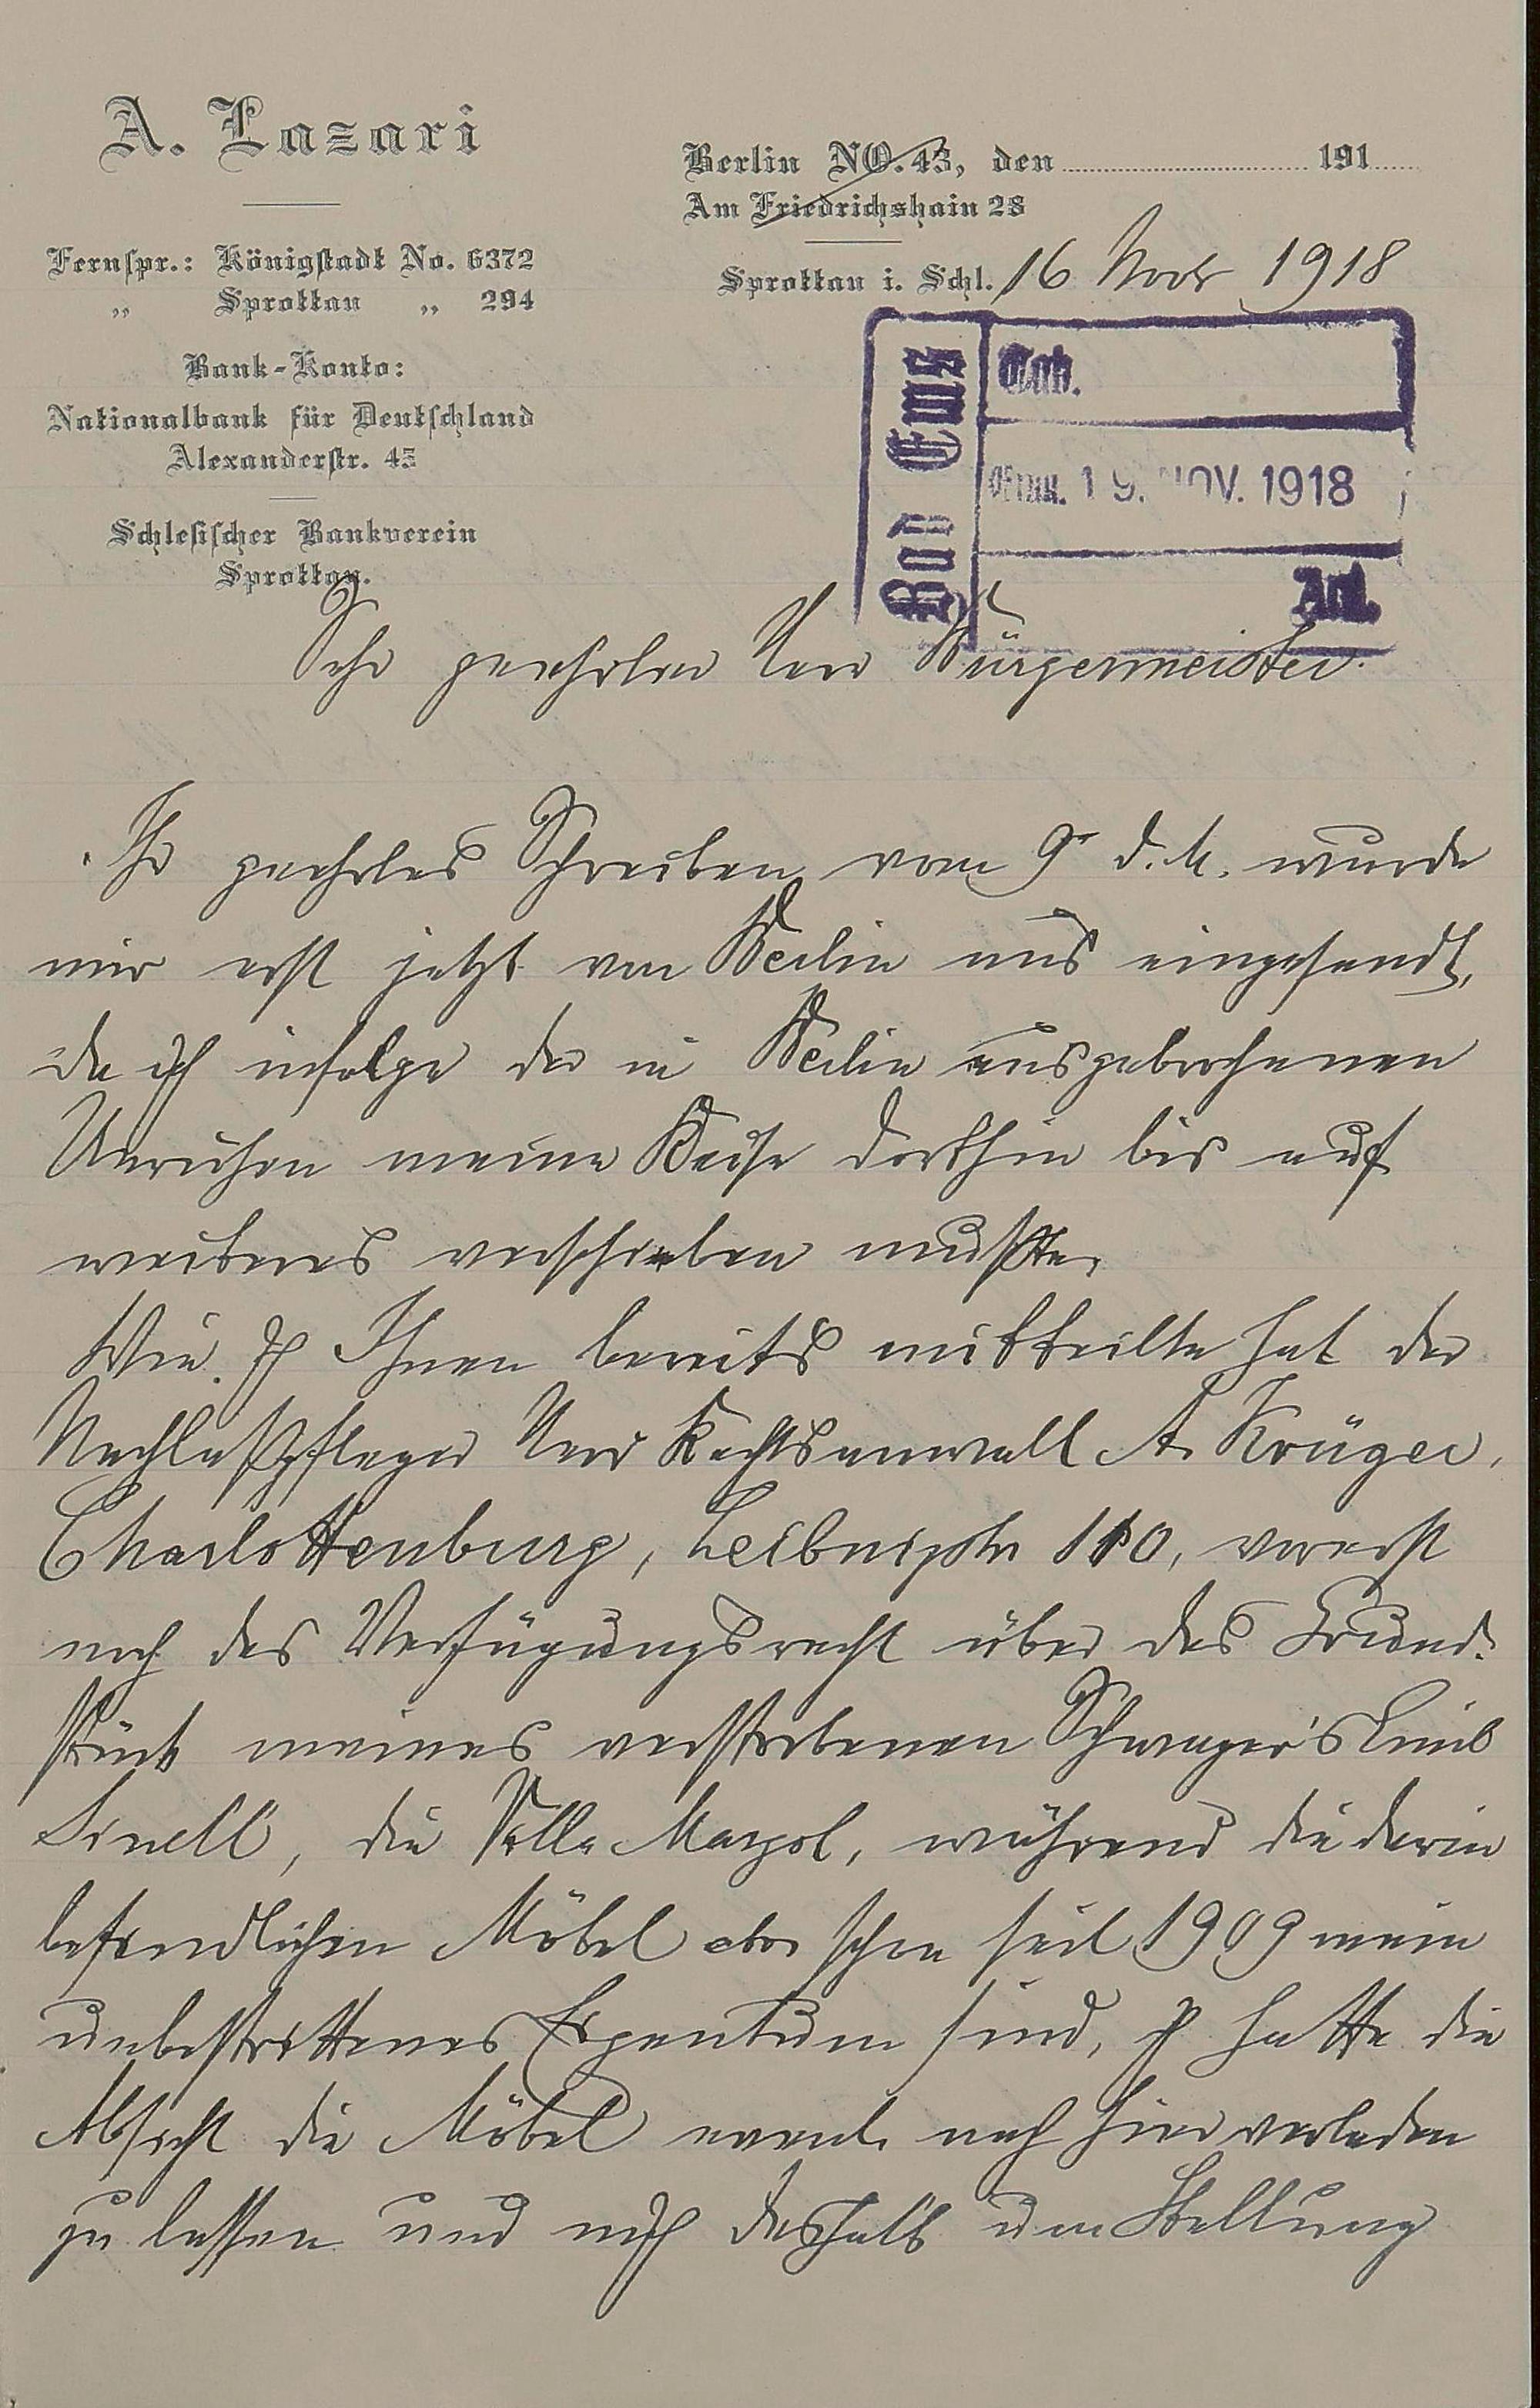 A. Lazari
Fernspr.: Königstadt No. 6372
„ Sprottau „ 294
Bank-Konto:
Nationalbank für Deutschland
Alexanderstr. 45
Schlesischer Bankverein
Sprottau.
Berlin NO. 43, den 191
Am Friedrichshain 28
Sprottau i. Schl. 16 Novbr 1918
Bad Ems
Tab.
19. NOV. 1918
Anl.
Sehr geehrter Herr Bürgermeister.
Ihr geehrtes Schreiben vom 9r d. M. wurde
mir erst jetzt von Berlin aus eingesandt,
da ich infolge der in Berlin ausgebrochenen
Unruhen meine Reise dorthin bis auf
weiteres verschieben mußte.
Wie ich Ihnen bereits mitteilte hat der
Nachlaßpfleger Herr Rechtsanwalt A. Krüger,
Charlottenburg, Leibnizstr 110, vorerst
noch das Verfügungsrecht über das Grund-
stück meines verstorbenen Schwager's Emil
die Villa während die darin
befindlichen Möbel aber schon seit 1909 mein
unbestrittenes Eigentum sind, ich hatte die
Absicht die Möbel event. nach hier verladen
zu lassen und mich deshalb um Stellung